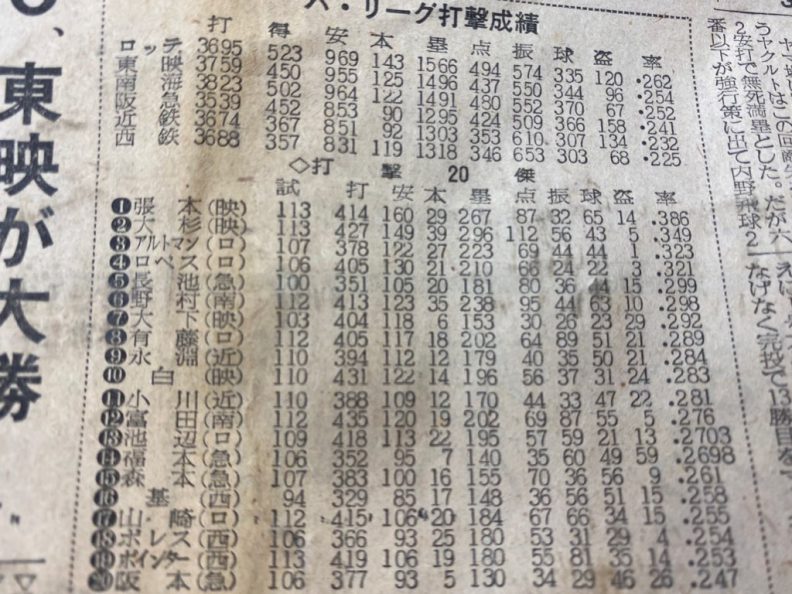 、東映が大勝
パ・リーグ打撃成績
打 得 安 本 塁 点 振 球 盗 率
ロッテ 3695 523 969 143 1566 494 574 335 120 .262
東映 3759 450 955 125 1496 437 550 344 96 .254
南海 3823 502 964 122 1491 480 552 370 67 .252
阪急 3539 452 853 90 1295 424 509 366 158 .241
近鉄 3674 367 851 92 1303 353 610 307 134 .232
西鉄 3688 357 831 119 1318 346 653 303 68 .225
◇打撃20傑
試 打 安 本 塁 点 振 球 盗 率
❶張本(映) 113 414 160 29 267 87 32 65 14 .386
❷大杉(映) 113 427 149 39 296 112 56 43 5 .349
❸アルトマン(ロ) 107 378 122 27 223 69 44 44 1 .323
❹ロペス(ロ) 106 405 130 21 210 66 24 22 3 .321
❺長池(急) 100 351 105 20 181 80 36 44 15 .299
❻野村(南) 112 413 123 35 238 95 44 63 10 .298
❼大下(映) 103 404 118 6 153 30 26 23 29 .292
❽有藤(ロ) 112 405 117 18 202 64 89 51 21 .289
❾永淵(近) 110 394 112 12 179 40 35 50 21 .284
❿白(映) 110 431 122 14 196 56 37 31 24 .283
⓫小川(近) 110 388 109 12 170 44 33 47 22 .281
⓬富田(南) 112 435 120 19 202 69 87 55 5 .276
⓭池辺(ロ) 109 418 113 22 195 57 59 21 13 .2703
⓮福本(急) 106 352 95 7 140 35 60 49 59 .2698
⓯森本(急) 107 383 100 16 155 70 36 56 9 .261
⓰基(西) 94 329 85 17 148 36 56 51 15 .258
⓱山崎(ロ) 112 415 106 20 184 67 66 34 15 .255
⓲ボレス(西) 106 366 93 25 180 53 31 29 4 .254
⓳ポインター(西) 113 419 106 19 180 55 81 35 14 .253
⓴阪本(急) 106 377 93 5 130 34 29 46 26 .247
うヤクルトはこの回敵失
2安打で無死満塁とした。だが六
番以下が強行策に出て内野飛球2
なげなく完投で13勝目を